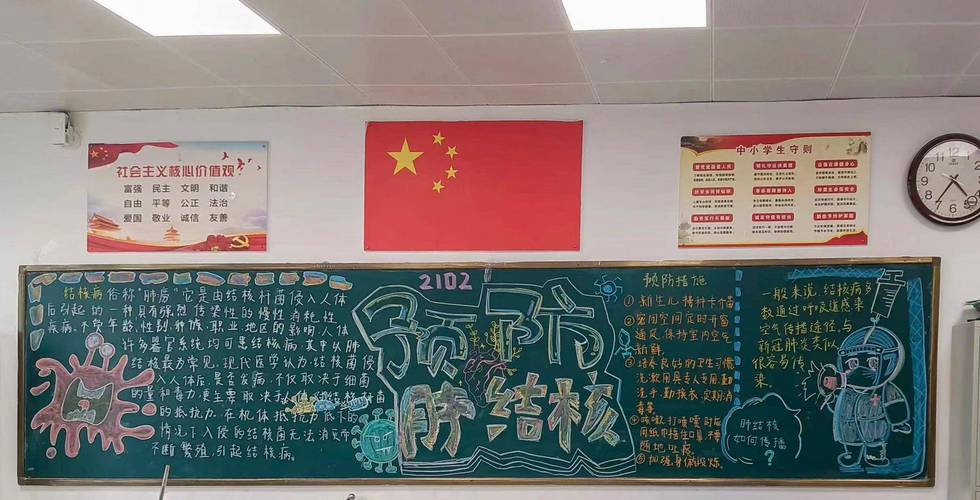 社会主义核心价值观
富强 民主 文明 和谐
自由 平等 公正 法治
爱国 敬业 诚信 友善
中小学生守则
2102
预防
肺结核
结核病俗称"肺痨"它是由结核杆菌侵入人体
后引起的一种具有强烈传染性的慢性消耗性
疾病.不受年龄,性别,种族,职业,地区的影响,人体
许多器官系统均可患结核病,其中以肺
结核最为常见.现代医学认为:结核菌侵
入人体后,是否发病,不仅取决于细菌
的量和毒力,更主要取决于人体对结核菌
的抵抗力,在机体抵抗力低下的
情况下入侵的结核菌无法消灭而
不断繁殖,引起结核病。
预防措施
①新生儿接种卡介苗
②密闭空间定时开窗
通风,保持室内空气
新鲜
③培养良好的卫生习惯
洗漱用具专人专用,勤
洗手,勤换衣,定期消
毒等
④咳嗽打喷嚏时应
用纸巾捂住口鼻,不要
随地吐痰
⑤加强身体锻炼.
一般来说,结核病多
数通过呼吸道感染
空气传播途径,与
新冠肺炎类似
很容易传
染。
肺结核
如何传播
?